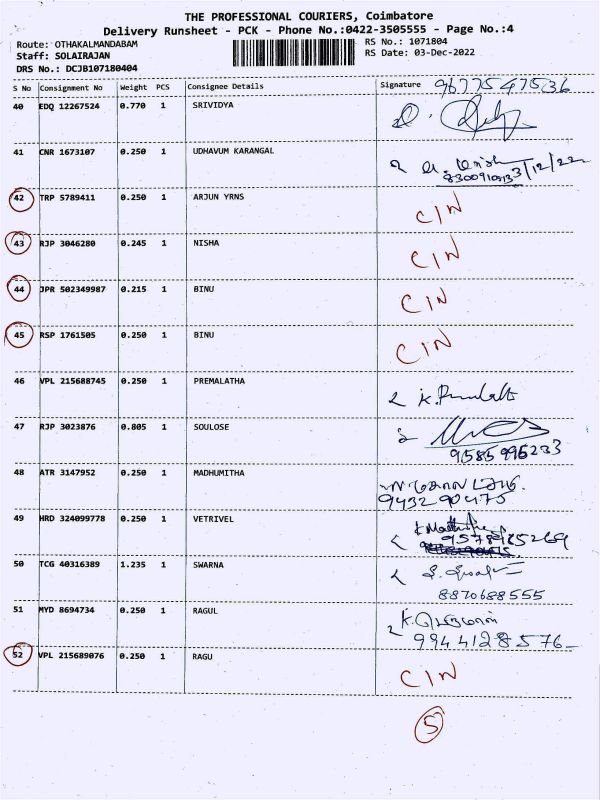 THE PROFESSIONAL COURIERS, Coimbatore
Delivery Runsheet - PCK - Phone No.:0422-3505555 - Page No.:4
Route: OTHAKALMANDABAM RS No.: 1071804
Staff: SOLAIRAJAN RS Date: 03-Dec-2022
DRS No.: DCJB107180404
S No Consignment No Weight PCS Consignee Details Signature 9677547536
40 EDQ 12267524 0.770 1 SRIVIDYA
41 CNR 1673107 0.250 1 UDHAVUM KARANGAL
3/12/22
42 TRP 5789411 0.250 1 ARJUN YRNS CIN
43 RJP 3046280 0.245 1 NISHA CIN
44 JPR 502349987 0.215 1 BINU CIN
45 RSP 1761505 0.250 1 BINU CIN
46 VPL 215688745 0.250 1 PREMALATHA
47 RJP 3023876 0.805 1 SOULOSE
9585995233
48 ATR 3147952 0.250 1 MADHUMITHA
943290475
49 HRD 324099778 0.250 1 VETRIVEL
50 TCG 40316389 1.235 1 SWARNA
8870688555
51 MYD 8694734 0.250 1 RAGUL
9944128576
52 VPL 215689076 0.250 1 RAGU CIN
5